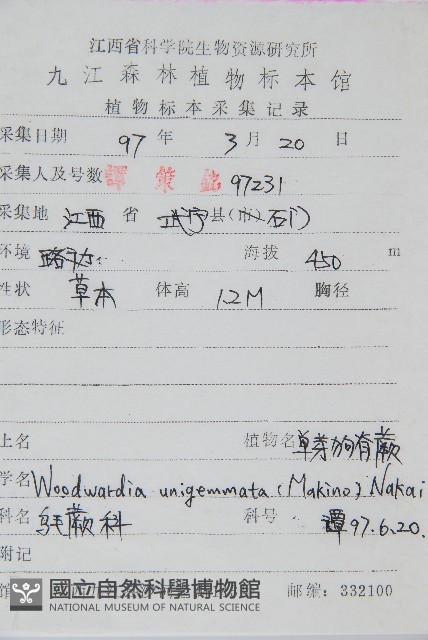 江西省科学院生物资源研究所
九江森林植物标本馆
植物标本采集记录
采集日期 97 年 3 月 20 日
采集人及号数 譚策銘 97231
采集地 江西 省 武宁 县(市) 石门
环境 路旁 海拔 450 m
性状 草本 体高 1.2M 胸径
形态特征
土名 植物名 单芽狗脊蕨
学名 Woodwardia unigemmata (Makino) Nakai
科名 乌毛蕨科 科号 譚 97.6.20.
附记
馆 邮编: 332100
國立自然科學博物館
NATIONAL MUSEUM OF NATURAL SCIENCE